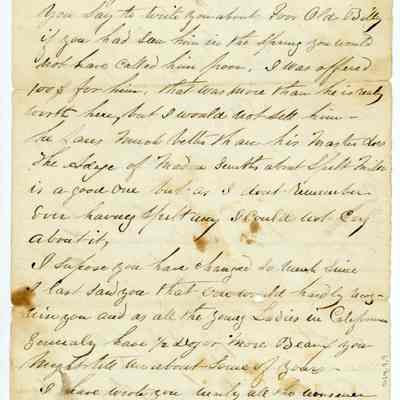 You Say to write you about Poor Old Billy
if you had Seen him in the Spring you would
not have called him poor. I was offered
100$ for him, that was more than he is realy
worth here, but I would not sell him —
he fares Much better than his Master does
The Adage of about Spilt Milk
is a good one but as I dont Remember
Ever having Spilt any I Could not Cry
about it,
I Supose you have changed So Much Since
I last saw you that One would hardly
you and as all the young Ladies in California
Generaly have ½ Doz or More Beaux you
Might tell me about Some of yours —
I have wrote you nearly all the nonsense